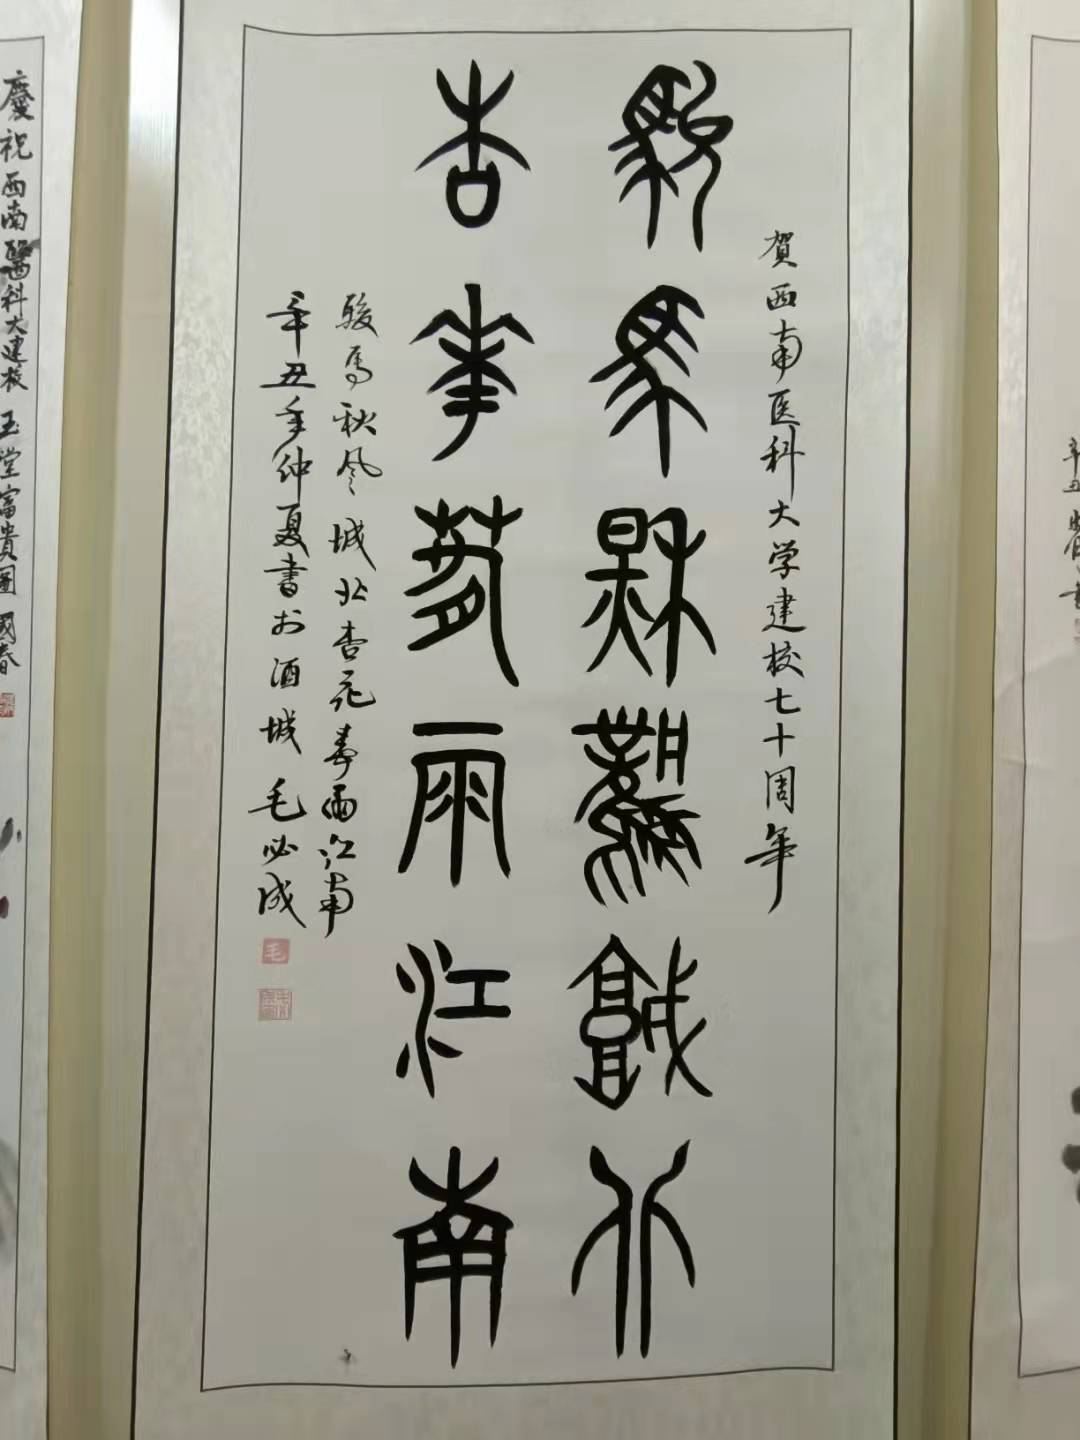 辛丑
賀西南医科大学建校七十周年
駿馬秋風城北
杏華春雨江南
駿馬秋风城北杏花春雨江南
辛丑年仲夏書於酒城 毛必成
毛
慶祝西南醫科大建校 玉堂富貴圖 國春